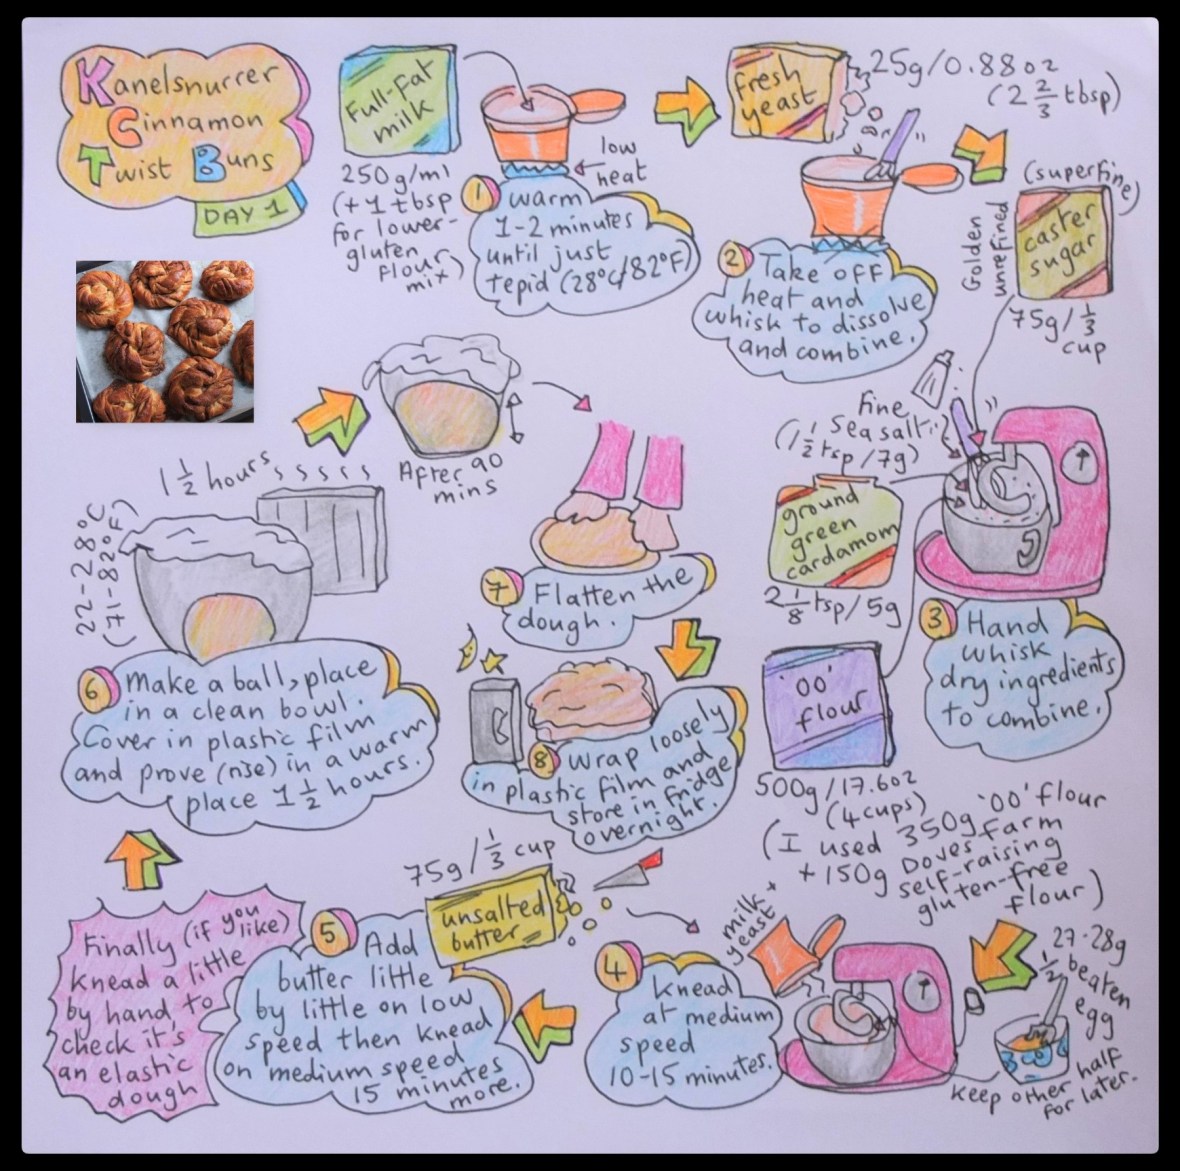 Kanelsnurrer
Cinnamon
Twist Buns
DAY 1
Full-Fat
milk
250g/ml
(+1 tbsp
for lower-
gluten
flour
mix)
low
heat
1
warm
1-2 minutes
until just
tepid (28°C/82°F)
fresh
yeast
25g/0.88oz
(2 2/3 tbsp)
2
Take off
heat and
whisk to dissolve
and combine.
(superfine)
Golden
unrefined
caster
sugar
75g/1/3
cup
Fine
sea salt
(1 1/2 tsp/7g)
ground
green
cardamom
2 1/8 tsp/5g
'00'
flour
500g/17.6oz
(4 cups)
(I used 350g '00' flour
+ 150g Doves Farm
self-raising
gluten-free
flour)
3
Hand
whisk
dry ingredients
to combine.
27-28g
1/2 beaten
egg
keep other half
for later.
milk +
yeast
4
Knead
at medium
speed
10-15 minutes.
75g/1/3 cup
unsalted
butter
5
Add
butter little
by little on low
speed then knead
on medium speed
15 minutes
more.
Finally (if you
like)
knead a little
by hand, to
check it's
an elastic
dough
6
Make a ball, place
in a clean bowl.
Cover in plastic film
and prove (rise) in a warm
place 1 1/2 hours.
22-28°C
(71-82°F)
1 1/2 hours
After 90
mins
7
Flatten the
dough.
8
Wrap loosely
in plastic film and
store in fridge
overnight.